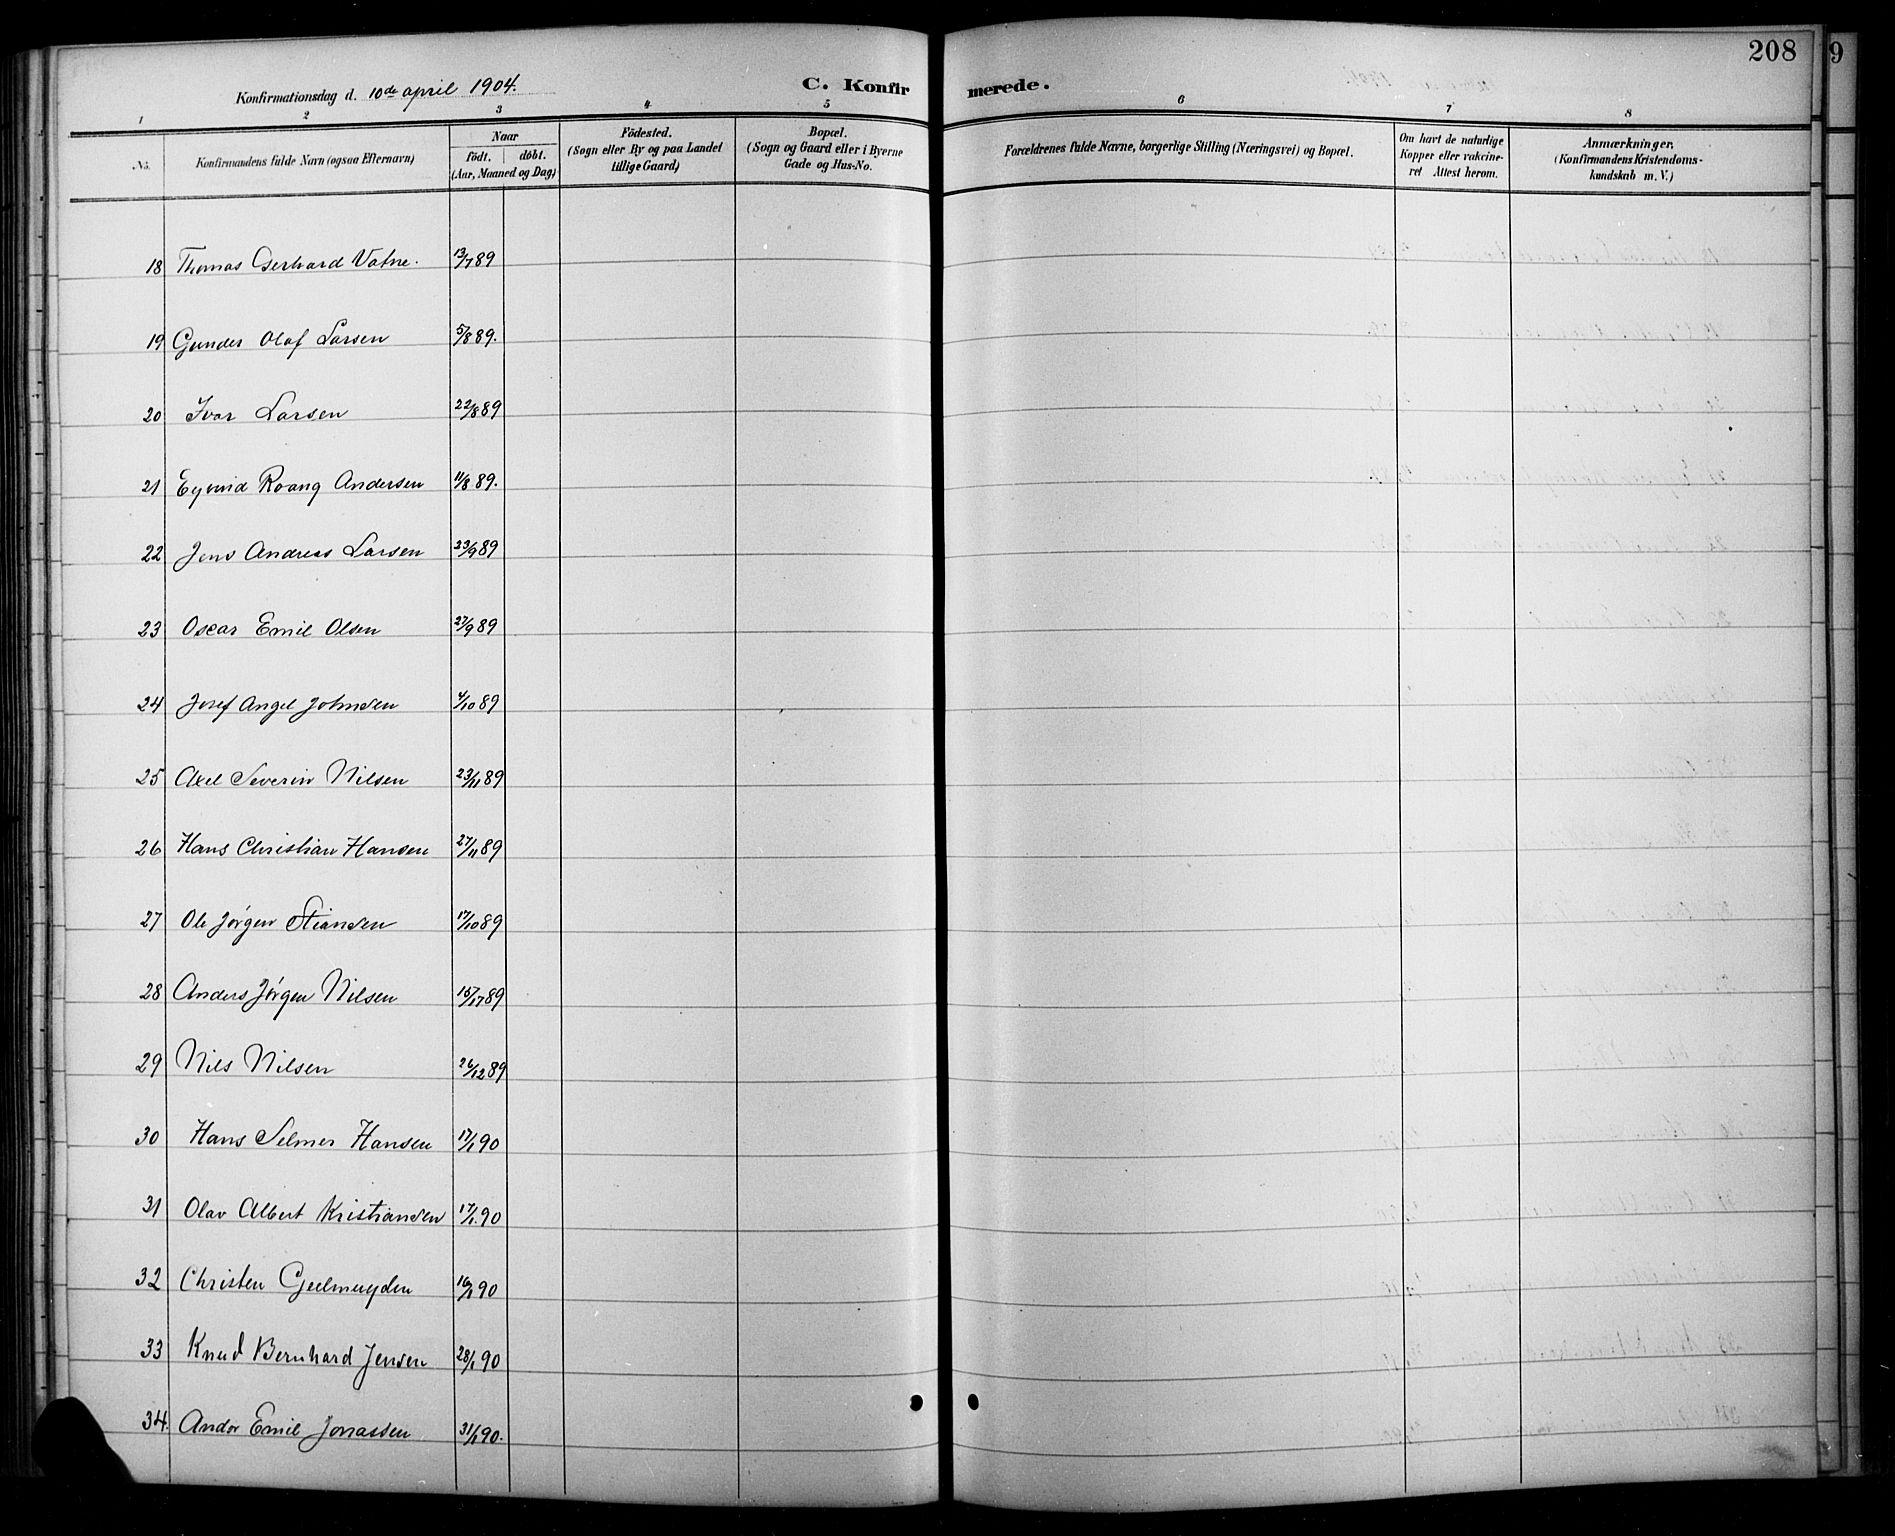 208
9
Konfirmationsdag d. 10de april 1904.
C. Konfirmerede.
1 2 3 4 5 6 7 8
No.
Konfirmandens fulde Navn (ogsaa Efternavn)
Naar
födt. döbt.
(Aar, Maaned og Dag)
Födested.
(Sogn eller By og paa Landet
tillige Gaard)
Bopæl.
(Sogn og Gaard eller i Byerne
Gade og Hus-No.
Forældrenes fulde Navne, borgerlige Stilling (Næringsvei) og Bopæl.
Om havt de naturlige
Kopper eller vakcine-
ret Attest herom.
Anmærkninger.
(Konfirmandens Kristendoms-
kundskab m. V.)
18 Thomas Gerhard Vatne. 13/7 89
19 Gunder Olaf Larsen 5/8 89.
20 Ivar Larsen 22/8 89
21 Eyvind Roang Andersen 11/8 89.
22 Jens Andreas Larsen 23/9 89
23 Oscar Emil Olsen 27/9 89
24 Josef Angel Johnsen 4/10 89
25 Axel Severin Nilsen 23/11 89
26 Hans Christian Hansen 27/11 89
27 Ole Jörgen Stiansen 17/10 89
28 Anders Jörgen Nilsen 89
29 Nils Nilsen 26/12 89
30 Hans Selmer Hansen 17/1 90
31 Olav Albert Kristiansen 17/1. 90
32 Christen Gjelmuyden 16/1 90
33 Knud Bernhard Jensen 28/1 90
34. Andor Emil Jonassen 31/1 90.